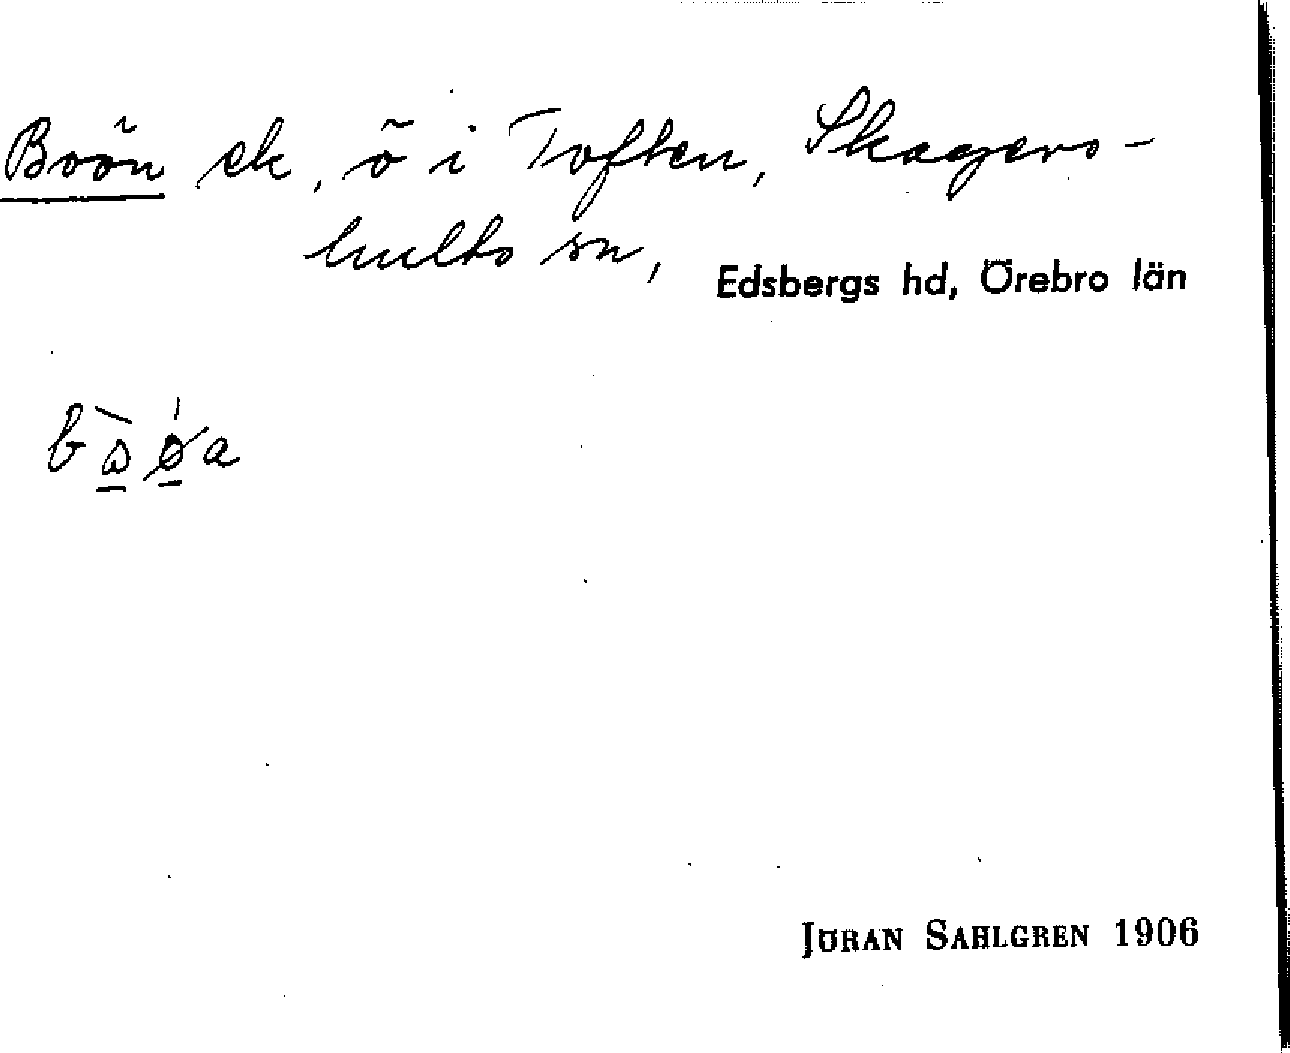 Boön ek, ö i Toften, Skagers-
hults sn,
Edsbergs hd, Örebro län
JÖRAN SAHLGREN 1906